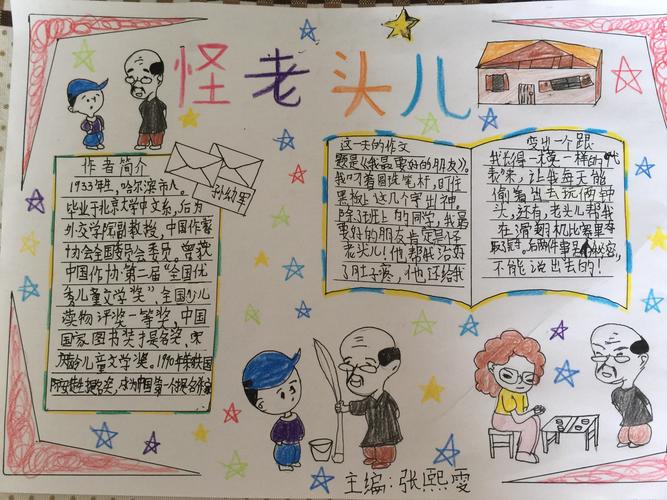 怪老头儿
作者简介
1933年生,哈尔滨市人。
毕业于北京大学中文系,后为
外交学院副教授,中国作家
协会全国委员会委员。曾获
中国作协第二届“全国优
秀儿童文学奖”、全国少儿
读物评奖一等奖,中国
国家图书奖提名奖,宋
庆龄儿童文学奖。1990年荣获国际
安徒生提名奖,成为中国第一个提名作家
孙幼军
这一天的作文
题是《我最要好的朋友》。
我叼着圆珠笔杆,盯住
黑板上这几个字出神。
除了班上的同学,我最
要好的朋友肯定是怪
老头儿!他帮我治好
了肚子疼,他还给我
变出一个跟
我长得一模一样的“代
表”来,让我每天能
偷着出去玩两钟
头,还有,老头儿帮我
在滑翔机比赛里夺
取冠军。后两件事是秘密,
不能说出去的!
主编:张熙雯